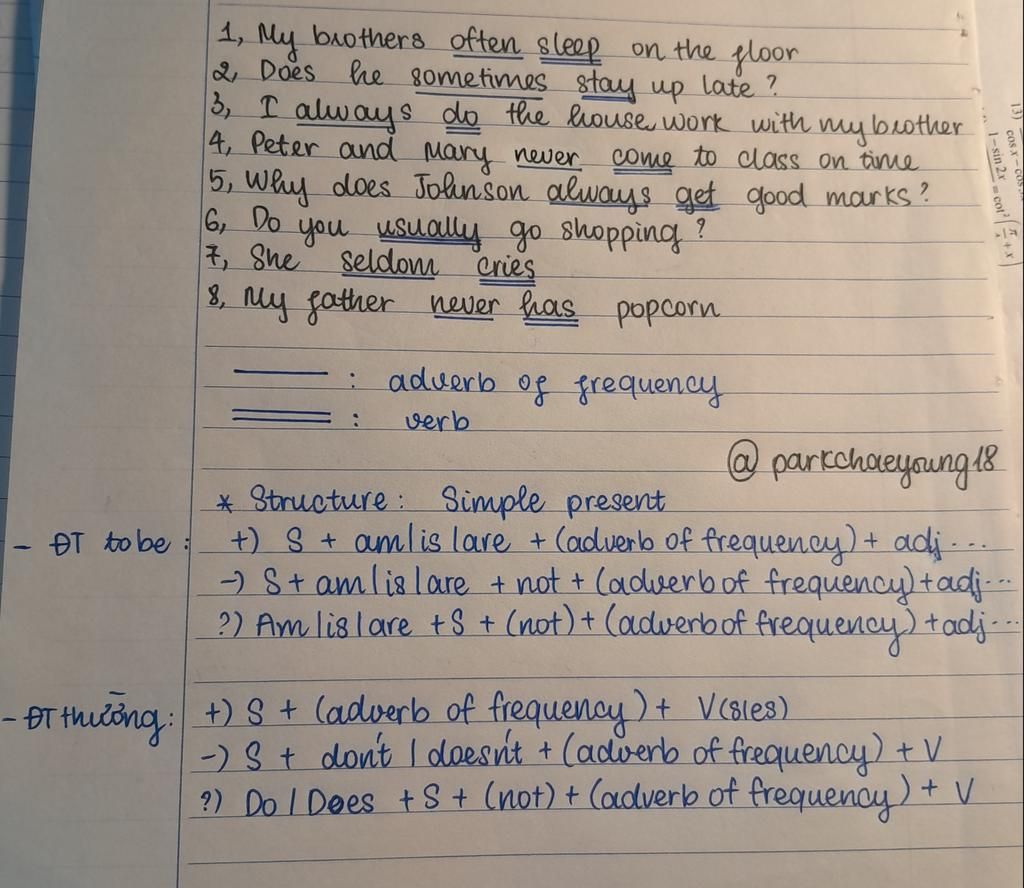 1, My brothers often sleep on the floor
2, Does he sometimes stay up late?
3, I always do the house work with my brother
4, Peter and Mary never come to class on time
5, Why does Johnson always get good marks?
6, Do you usually go shopping?
7, She seldom cries
8, My father never has popcorn
: adverb of frequency
: verb
@ parkchaeyoung18
* Structure: Simple present
- ĐT to be: +) S + am/is/are + (adverb of frequency) + adj...
-) S + am/is/are + not + (adverb of frequency) + adj...
?) Am/is/are + S + (not) + (adverb of frequency) + adj...
- ĐT thường: +) S + (adverb of frequency) + V(s/es)
-) S + don't / doesn't + (adverb of frequency) + V
?) Do / Does + S + (not) + (adverb of frequency) + V
13)
1-sin2x